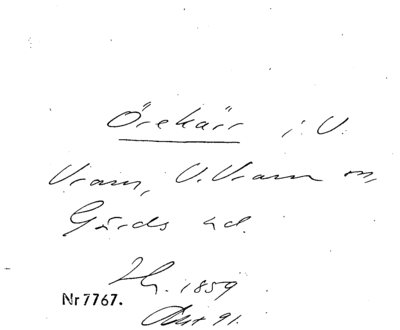 Örekärr i V.
Vram, V. Vram sn,
Gärds hd.
1859
Nr 7767.
91.